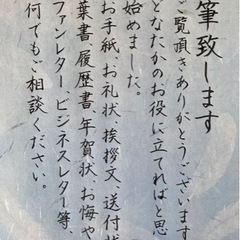 筆致します
ご覧頂きありがとうございます
どなたかのお役に立てればと思
始めました。
お手紙、お礼状、挨拶文、送付状
葉書、履歴書、年賀状、お悔や
ファンレター、ビジネスレター等、
何でもご相談ください。